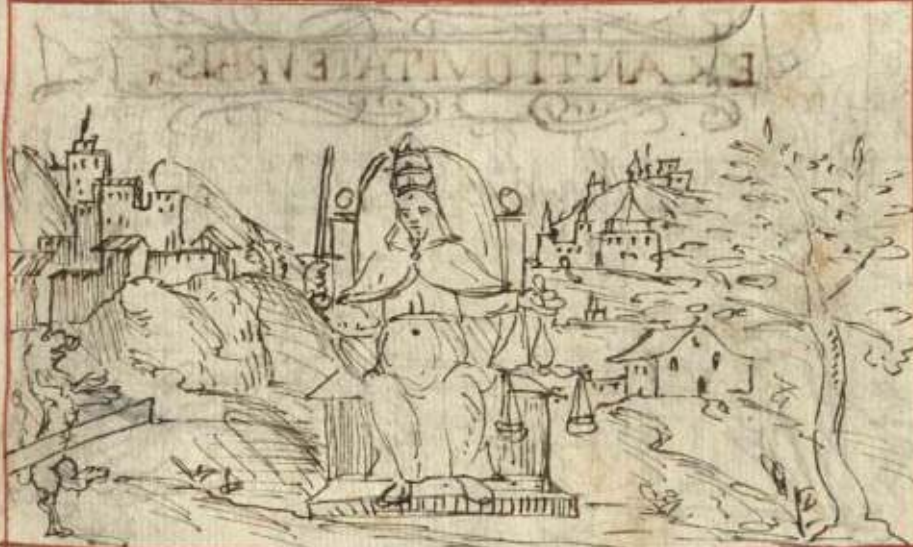 EX ANTIQVITATE VRBIS